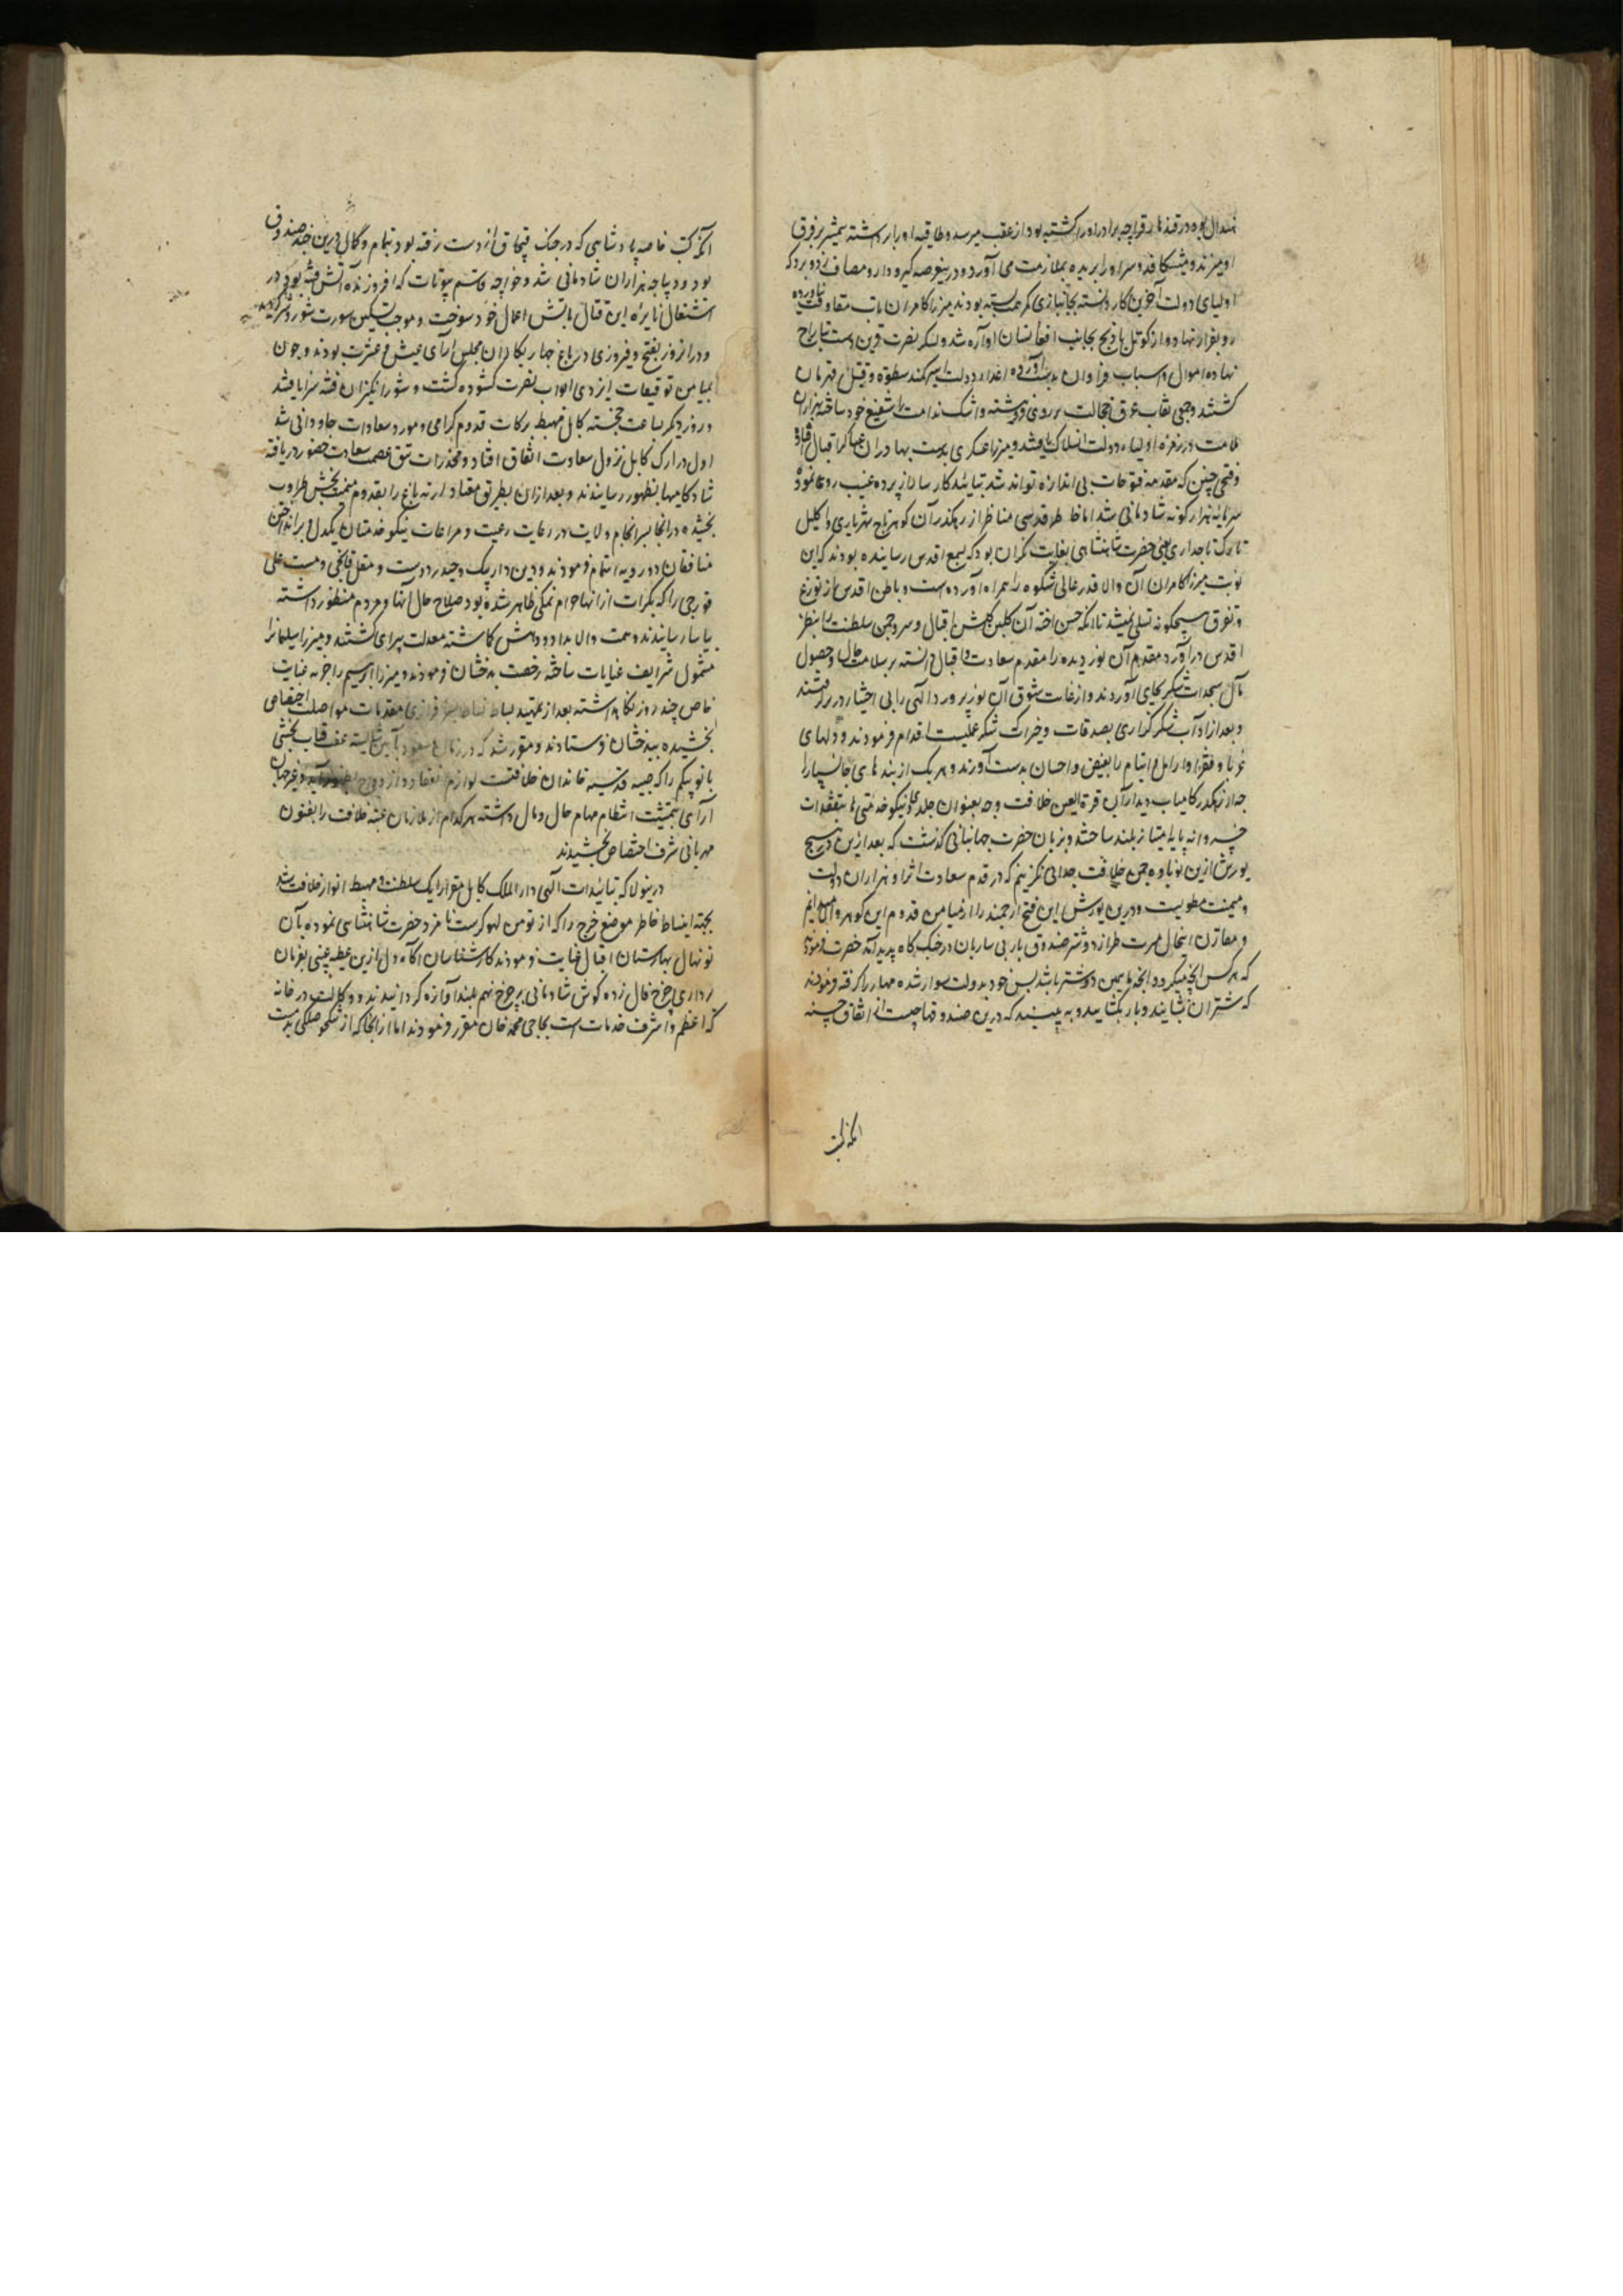 هندال بوده در قندهار قراچه برادر او را کشته بود از عقب میرسد و طاقیه او را برداشته شمشیر بر فرق
او میزند و میشکافد و سر او را بریده بملازمت می آورد و درین عرصه گیرودار و مصاف زد و برد که
اولیای دولت آخرین کار دانسته بجانبازی کمر همت بسته بودند میرزا کامران تاب مقاومت نیاورده
رو بفرار نهاد و از کوتل بادبج بجانب افغانستان آواره شد و لشکر نصرت قرین دست بتاراج
نهاده اموال و اسباب فراوان بدست آورده اعدای دولت اسیر کمند سطوة و قتیل قهرمان
کشتند و جمعی نقاب عرق خجالت بر روی فروهشته و اشک ندامت را شفیع خود ساخته هزاران
ملامت در زمره اولیاء دولت انسلاک یافتند و میرزا عسکری بدست بهادران عساکر اقبال افتاد
و فتحی چنین که مقدمه فتوحات بی اندازه تواند شد بتایید کارساز از پرده غیب رو نمود
سرمایه هزار گونه شادمانی شد اما خاطر قدسی مناظر از رهگذر آن گوهر تاج شهریاری و اکلیل
تارک تاجداری یعنی حضرت شاهنشاهی بغایت نگران بود که بسمع اقدس رسانیده بودند که این
نوبت میرزا کامران آن والا قدر عالی شکوه را همراه آورده است و باطن اقدس از توزع
و تفرق هیچگونه تسلی نمیشد تا آنکه حسن اخته آن گلبن گلشن اقبال و سرو چمن سلطنت را بنظر
اقدس درآورد مقدم آن نور دیده را مقدم سعادت و اقبال دانسته بر سلامت حال و حصول
مآل سجدات شکر بجای آوردند و از غایت شوق آن نوپرورد الهی را بی اختیار در بر گرفتند
و بعد از آداب شکرگزاری بصدقات و خیرات شکر عملیست اقدام فرمودند و دلهای
غربا و فقرا و ارامل و ایتام را بفیض و احسان بدست آورند و هر یک از بندهای جانسپار را
چه از رهگذر کامیاب دیدار آن قرة العین خلافت و چه بعنوان جلدوی نیکو خدمتی ها بتفقدات
خسروانه پایه امتیاز بلند ساختند و بر زبان حضرت جهانبانی گذشت که بعد ازین در هیچ
یورش ازین نوباوه چمن خلافت جدایی نگزینم که در قدم سعادت اثر او هزاران دولت
و میمنت مطویست و درین یورش این فتح ارجمند را از میامن قدوم این گوهر والا میدانم
و مقارن اینحال مسرت طراز دو شتر صندوق بار بی ساربان در جنگ گاه پدید آمد حضرت فرمودند
که هر کس الجه میگیرد و الجه ما همین دو شتر باشد پس خود بدولت سوار شده مهار را گرفته فرمودند
که شتران بنشانند و بار بگشایید و به بینید که درین صندوقها چیست از اتفاق حسنه
آنکه کتب
آنکه کتب خاصه پادشاهی که در جنگ قبچاق از دست رفته بود بتمام و کمال درین چند صندوق
بود و دیباجه هزاران شادمانی شد و خواجه قاسم بیوتات که افروزنده آتش فتنه بود و در
اشتعال نایره این قتال بآتش اعمال خود سوخت و موجب تسکین سورت شور و شر گردید
و در آن روز بفتح و فیروزی در باغ چاریکاران مجلس آرای عیش و عشرت بودند و چون
بمیامن توقیعات ایزدی ابواب نصرت گشوده گشت و شورانگیزان فتنه سزا یافتند
و روز دیگر بساعت خجسته کابل مهبط برکات قدوم گرامی و مورد سعادات جاودانی شد
اول در ارک کابل نزول سعادت اتفاق افتاد و مخدرات تتق عصمت سعادت حضور دریافته
شادکامیها بظهور رسانیدند و بعد از آن بطریق معتاد ارته باغ را بقدوم میمنت بخش طراوت
بخشیده در آنجا بسرانجام ولایت در رعایت رعیت و مراعات نیکو خدمتان یکدل و برانداختن
منافقان دو رویه اهتمام فرمودند و دین دار بیک و حیدر دوست و مغل قانجی و مست علی
قورچی را که بکرات ازانها حرام نمکی ظاهر شده بود صلاح حال آنها و مردم منظور داشته
بیاسا رسانیدند و همت والا بداد و دهش گماشته معدلت پیرای گشتند و میرزا سلیمانرا
مشمول شرایف عنایات ساخته رخصت بدخشان فرمودند و میرزا ابراهیم را جهت عنایت
خاص چند روز نگاه داشته بعد از تمهید بساط نشاط بسرفرازی مقدمات مواصلت اختصاص
بخشیده ببدخشان فرستادند و مقرر شد که در زمان مسعود بآیین شایسته عفت قباب بخشی
بانو بیگم را که صبیه قدسیه خاندان خلافتست لوازم انعقاد و ازدواج
آرای بتمشیت انتظام مهام حال و مآل داشته هر کدام از ملازمان عتبه خلافت را بفنون
مهربانی شرف اختصاص بخشیدند
درینولا که بتائیدات الهی دار الملک کابل مقر ارایک سلطنت و مهبط انوار خلافت شد
بجهة انبساط خاطر موضع چرخ را که از تومن لهوکرست نامزد حضرت شاهنشاهی نموده بآن
نونهال بهارستان اقبال عنایت فرمودند کارشناسان آگاه دل ازین عطیه غیبی بفرمان
برداری چرخ فال زده گوش شادمانی بر چرخ نهم بلند آوازه گردانیدند و وکالت در خانه
که اعظم و اشرف خدمات است بحاجی محمد خان مقرر فرمودند اما از آنجا که از تنگ حوصلگی بدمست